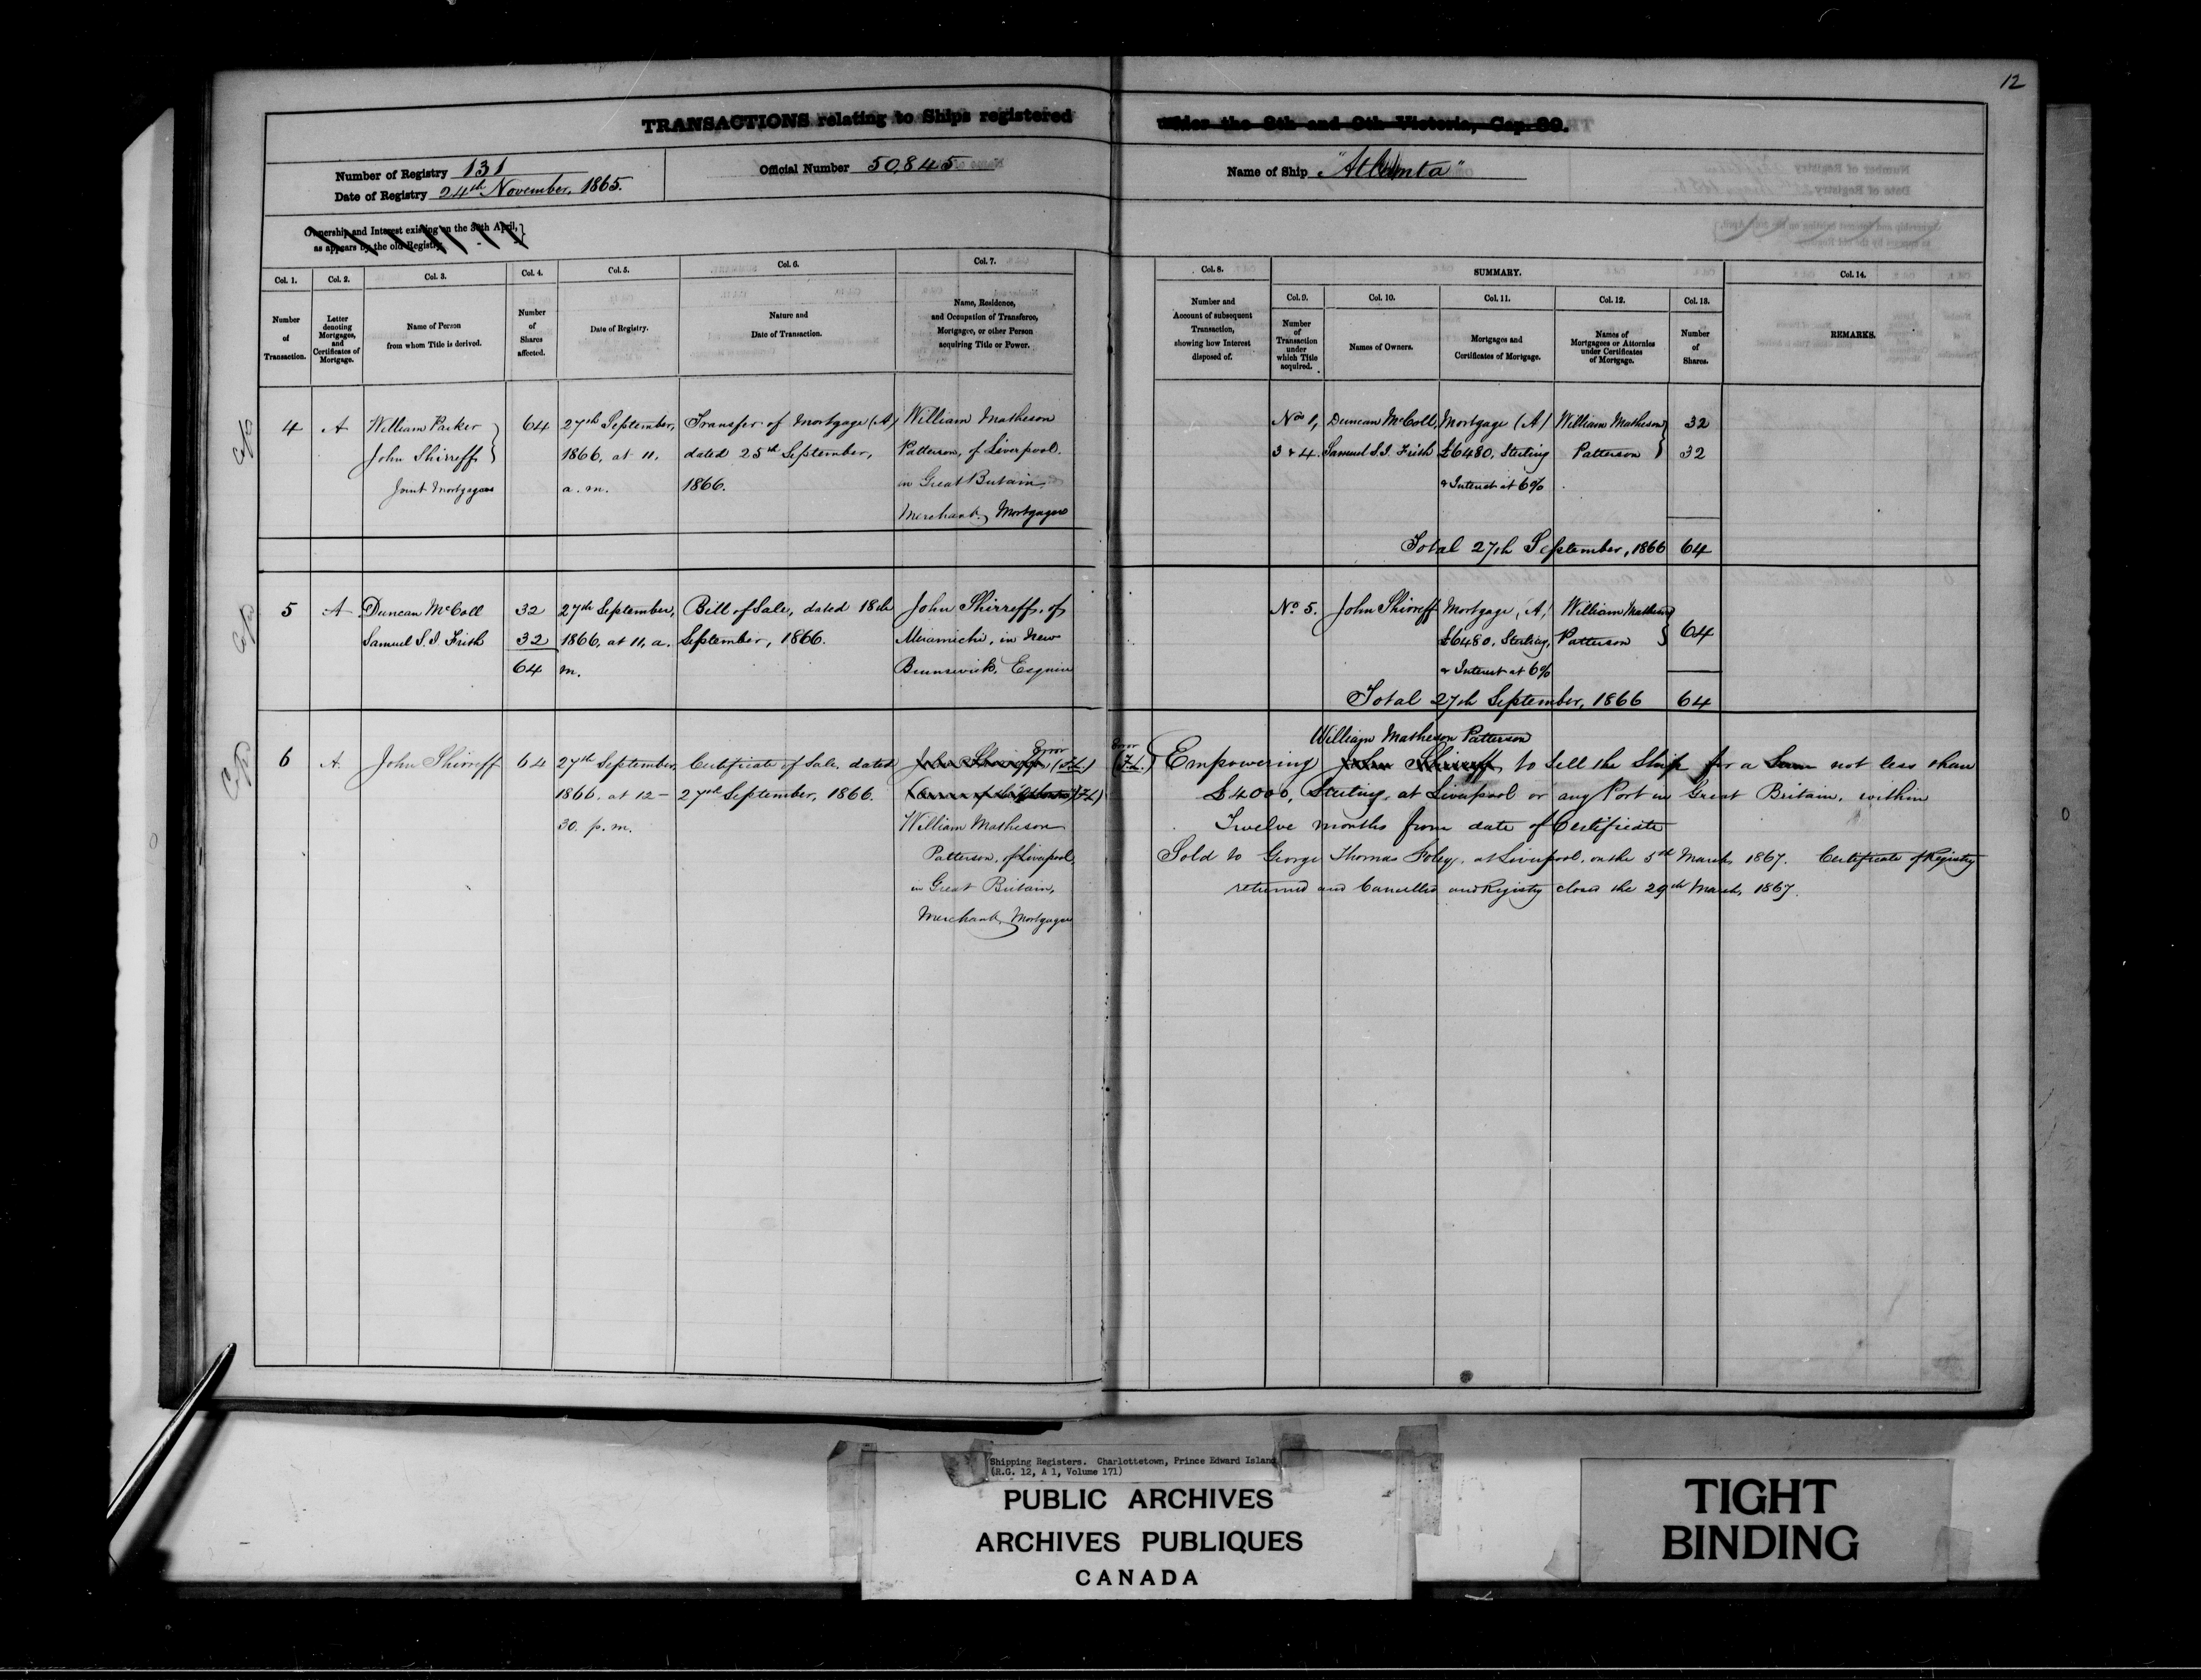 12
TRANSACTIONS relating to Ships registered under the 8th and 9th Victoria, Cap. 89.
Number of Registry 131
Date of Registry 24th November, 1865.
Official Number 50,845
Name of Ship "Atlanta"
Ownership and Interest existing on the 30th April,
as appears by the old Registry.
Col. 1.
Number
of
Transaction.
Col. 2.
Letter
denoting
Mortgages,
and
Certificates of
Mortgage.
Col. 3.
Name of Person
from whom Title is derived.
Col. 4.
Number
of
Shares
affected.
Col. 5.
Date of Registry.
Col. 6.
Nature and
Date of Transaction.
Col. 7.
Name, Residence,
and Occupation of Transferee,
Mortgagee, or other Person
acquiring Title or Power.
Col. 8.
Number and
Account of subsequent
Transaction,
showing how Interest
disposed of.
SUMMARY.
Col. 9.
Number
of
Transaction
under
which Title
acquired.
Col. 10.
Names of Owners.
Col. 11.
Mortgages and
Certificates of Mortgage.
Col. 12.
Names of
Mortgagees or Attornies
under Certificates
of Mortgage.
Col. 13.
Number
of
Shares.
Col. 14.
REMARKS.
4
A
William Parker
John Shirreff
Joint Mortgagees
64
27th September,
1866, at 11,
a. m.
Transfer of Mortgage (A)
dated 25th September,
1866.
William Matheson
Patterson, of Liverpool
in Great Britain,
Merchant, Mortgagee
Nos 1,
3 & 4.
Duncan McColl,
Samuel S. I. Frith
Mortgage (A)
£6480, Sterling
& Interest at 6%
William Matheson
Patterson
32
32
Total 27th September, 1866 64
5
A
Duncan McColl
Samuel S. I. Frith
32
32
64
27th September,
1866, at 11, a.
m.
Bill of Sale, dated 18th
September, 1866.
John Shirreff, of
Miramichi, in New
Brunswick, Esquire
No 5.
John Shirreff
Mortgage, (A)
£6480, Sterling,
& Interest at 6%
William Matheson
Patterson
64
Total 27th September, 1866 64
6
A.
John Shirreff
64
27th September,
1866, at 12-
30. p. m.
Certificate of Sale, dated
27th September, 1866.
Error
John Shirreff,
William Matheson
Patterson, of Liverpool
in Great Britain,
Merchant, Mortgagee
Error
William Matheson Patterson
Empowering John Shirreff to Sell the Ship for a Sum not less than
£4000, Sterling, at Liverpool or any Port in Great Britain, within
Twelve months from date of Certificate
Sold to George Thomas Foley, at Liverpool, on the 5th March, 1867. Certificate of Registry
returned and Cancelled and Registry closed the 29th March, 1867.
Shipping Registers. Charlottetown, Prince Edward Island
(R.G. 12, A 1, Volume 171)
PUBLIC ARCHIVES
ARCHIVES PUBLIQUES
CANADA
TIGHT
BINDING